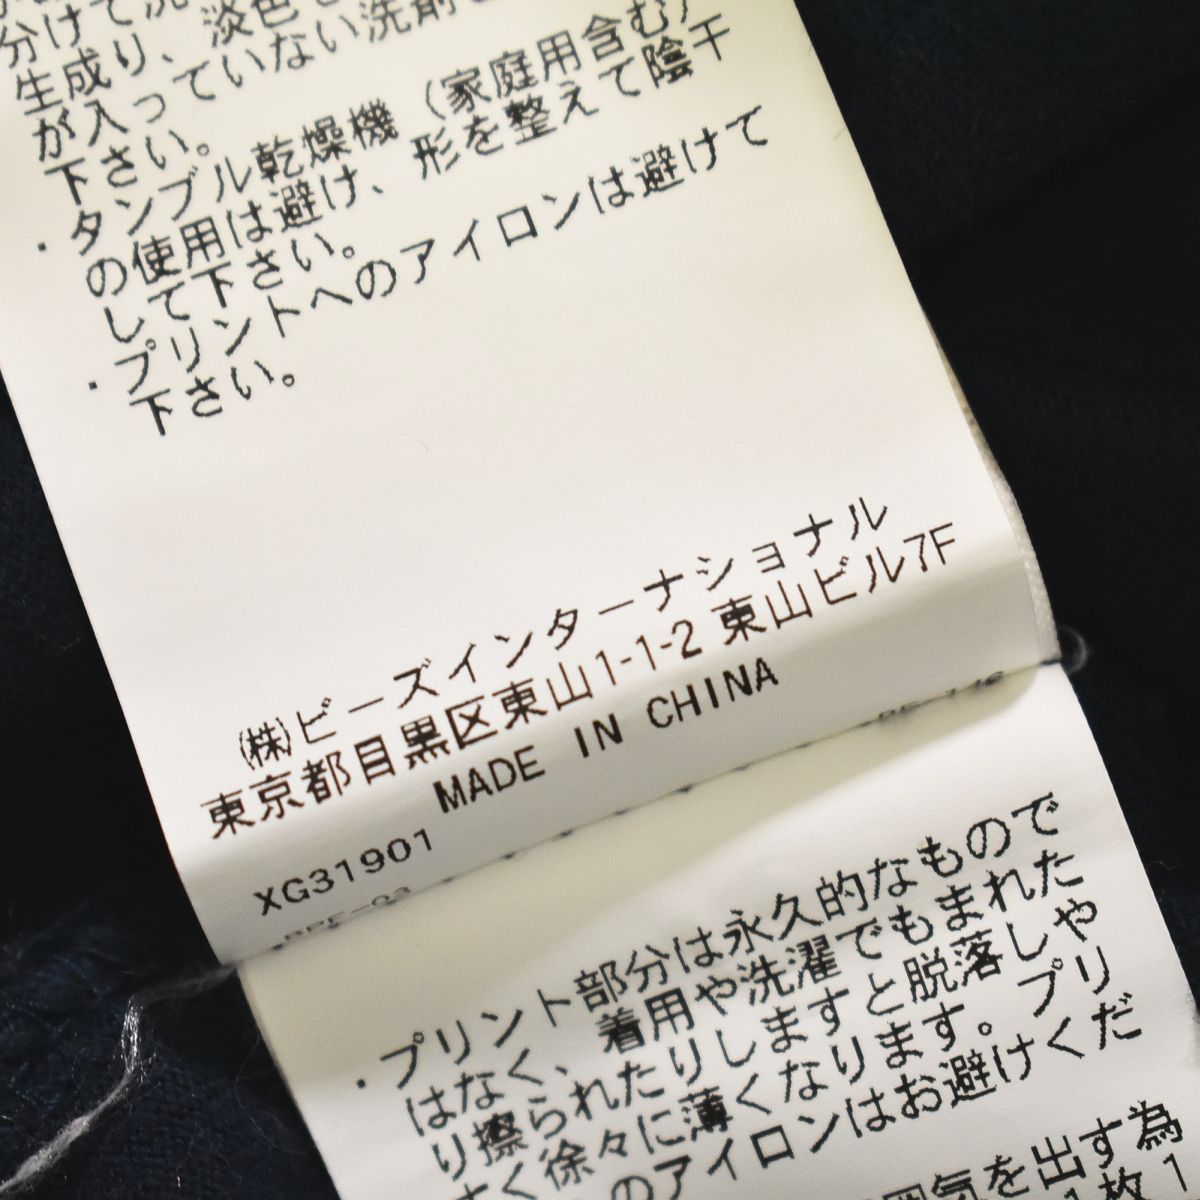 分けて洗
生成り、淡色
が入っていない洗剤
下さい。
・タンブル乾燥機（家庭用含む）
の使用は避け、形を整えて陰干
して下さい。
・プリントへのアイロンは避けて
下さい。
㈱ビーズインターナショナル
東京都目黒区東山1-1-2 東山ビル7F
MADE IN CHINA
XG31901
・プリント部分は永久的なもので
はなく、着用や洗濯でもまれた
り擦られたりしますと脱落しや
すく徐々に薄くなります。プリ
のアイロンはお避けくだ
囲気を出す為
枚1